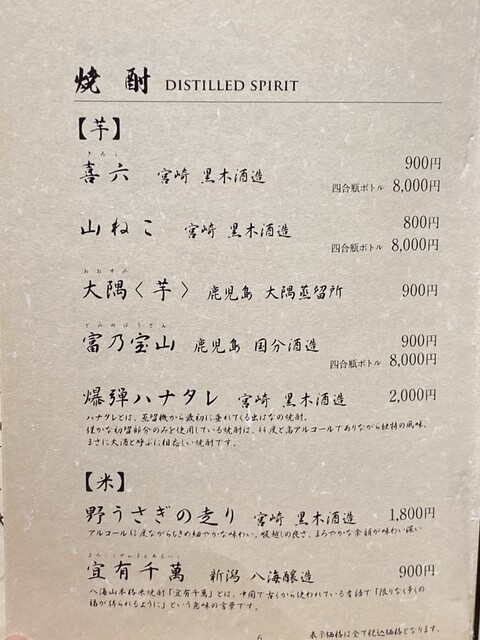 焼酎 DISTILLED SPIRIT
【芋】
きろく
喜六 宮崎 黒木酒造 900円
四合瓶ボトル 8,000円
山ねこ 宮崎 黒木酒造 800円
四合瓶ボトル 8,000円
おおすみ
大隅〈芋〉 鹿児島 大隅蒸留所 900円
とみのほうざん
富乃宝山 鹿児島 国分酒造 900円
四合瓶ボトル 8,000円
爆弾ハナタレ 宮崎 黒木酒造 2,000円
ハナタレとは、蒸留機から最初に垂れてくる出はなの焼酎。
僅かな初留部分のみを使用している焼酎は、44度と高アルコールでありながら独特の風味。
まさに大酒と呼ぶに相応しい焼酎です。
【米】
野うさぎの走り 宮崎 黒木酒造 1,800円
度ながらもきめ細やかな味わい。喉越しの良さ、まろやかな余韻が味わい深い
宜有千萬 新潟 八海醸造 900円
八海山本格米焼酎「宜有千萬」とは、中国で古くから使われている吉語で「限りなく多くの
福が得られるように」という意味の言葉です。
表示価格は全て税込価格となります。
6